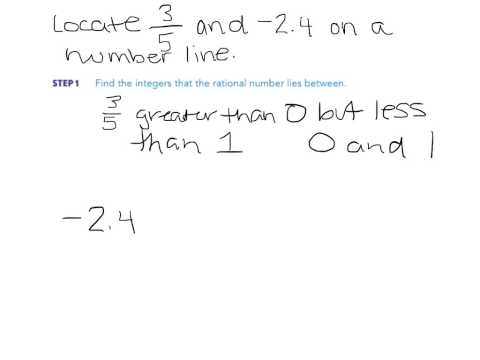 Locate 3/5 and -2.4 on a
number line.
STEP 1 Find the integers that the rational number lies between.
3/5 greater than 0 but less
than 1 0 and 1
-2.4